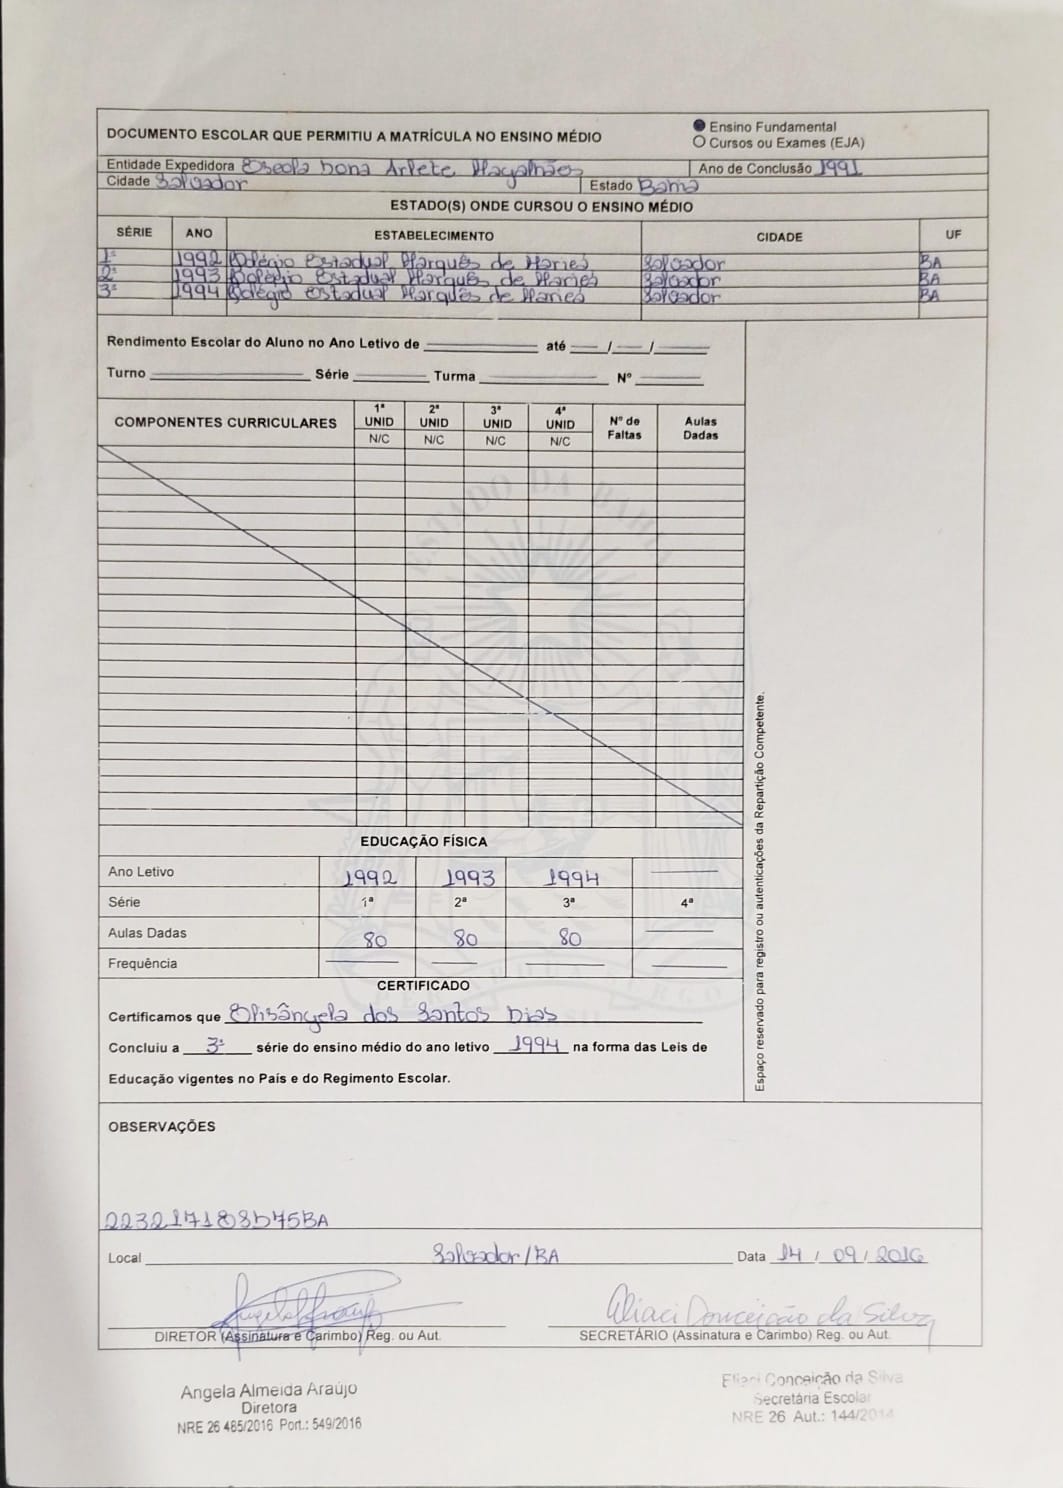 DOCUMENTO ESCOLAR QUE PERMITIU A MATRÍCULA NO ENSINO MÉDIO
Ensino Fundamental
Cursos ou Exames (EJA)
Entidade Expedidora Escola Dona Arlete Magalhães
Ano de Conclusão 1991
Cidade Salvador
Estado Bahia
ESTADO(S) ONDE CURSOU O ENSINO MÉDIO
SÉRIE ANO ESTABELECIMENTO CIDADE UF
1ª 1992 Colégio Estadual Marquês de Maricá Salvador BA
2ª 1993 Colégio Estadual Marquês de Maricá Salvador BA
3ª 1994 Colégio Estadual Marquês de Maricá Salvador BA
Rendimento Escolar do Aluno no Ano Letivo de até / /
Turno Série Turma Nº
COMPONENTES CURRICULARES
1ª UNID N/C
2ª UNID N/C
3ª UNID N/C
4ª UNID N/C
Nº de Faltas
Aulas Dadas
ESTADO DA BAHIA
EDUCAÇÃO FÍSICA
Ano Letivo 1992 1993 1994
Série 1ª 2ª 3ª 4ª
Aulas Dadas 80 80 80
Frequência
CERTIFICADO
Certificamos que Elisângela dos Santos Dias
Concluiu a 3ª série do ensino médio do ano letivo 1994 na forma das Leis de
Educação vigentes no País e do Regimento Escolar.
Espaço reservado para registro ou autenticações da Repartição Competente.
OBSERVAÇÕES
Local Salvador/BA Data 14/09/2016
Eliaci Conceição da Silva
DIRETOR (Assinatura e Carimbo) Reg. ou Aut.
SECRETÁRIO (Assinatura e Carimbo) Reg. ou Aut.
Angela Almeida Araújo
Diretora
NRE 26 485/2016 Port.: 549/2016
Eliaci Conceição da Silva
Secretária Escolar
NRE 26 Aut.: 144/2014